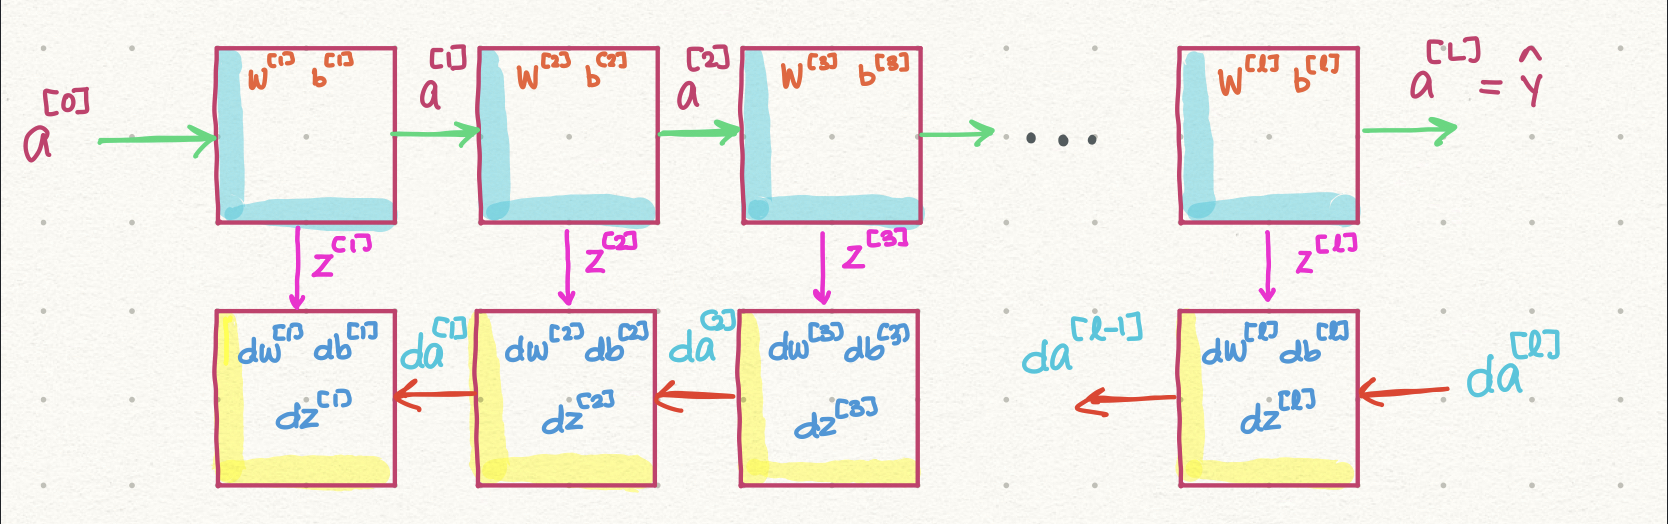 a^[0]
W^[1] b^[1]
a^[1]
W^[2] b^[2]
a^[2]
W^[3] b^[3]
...
W^[l] b^[l]
a^[L] = ŷ
z^[1]
z^[2]
z^[3]
z^[l]
dw^[1] db^[1]
dz^[1]
da^[1]
dw^[2] db^[2]
dz^[2]
da^[2]
dw^[3] db^[3]
dz^[3]
da^[l-1]
dW^[l] db^[l]
dz^[l]
da^[l]